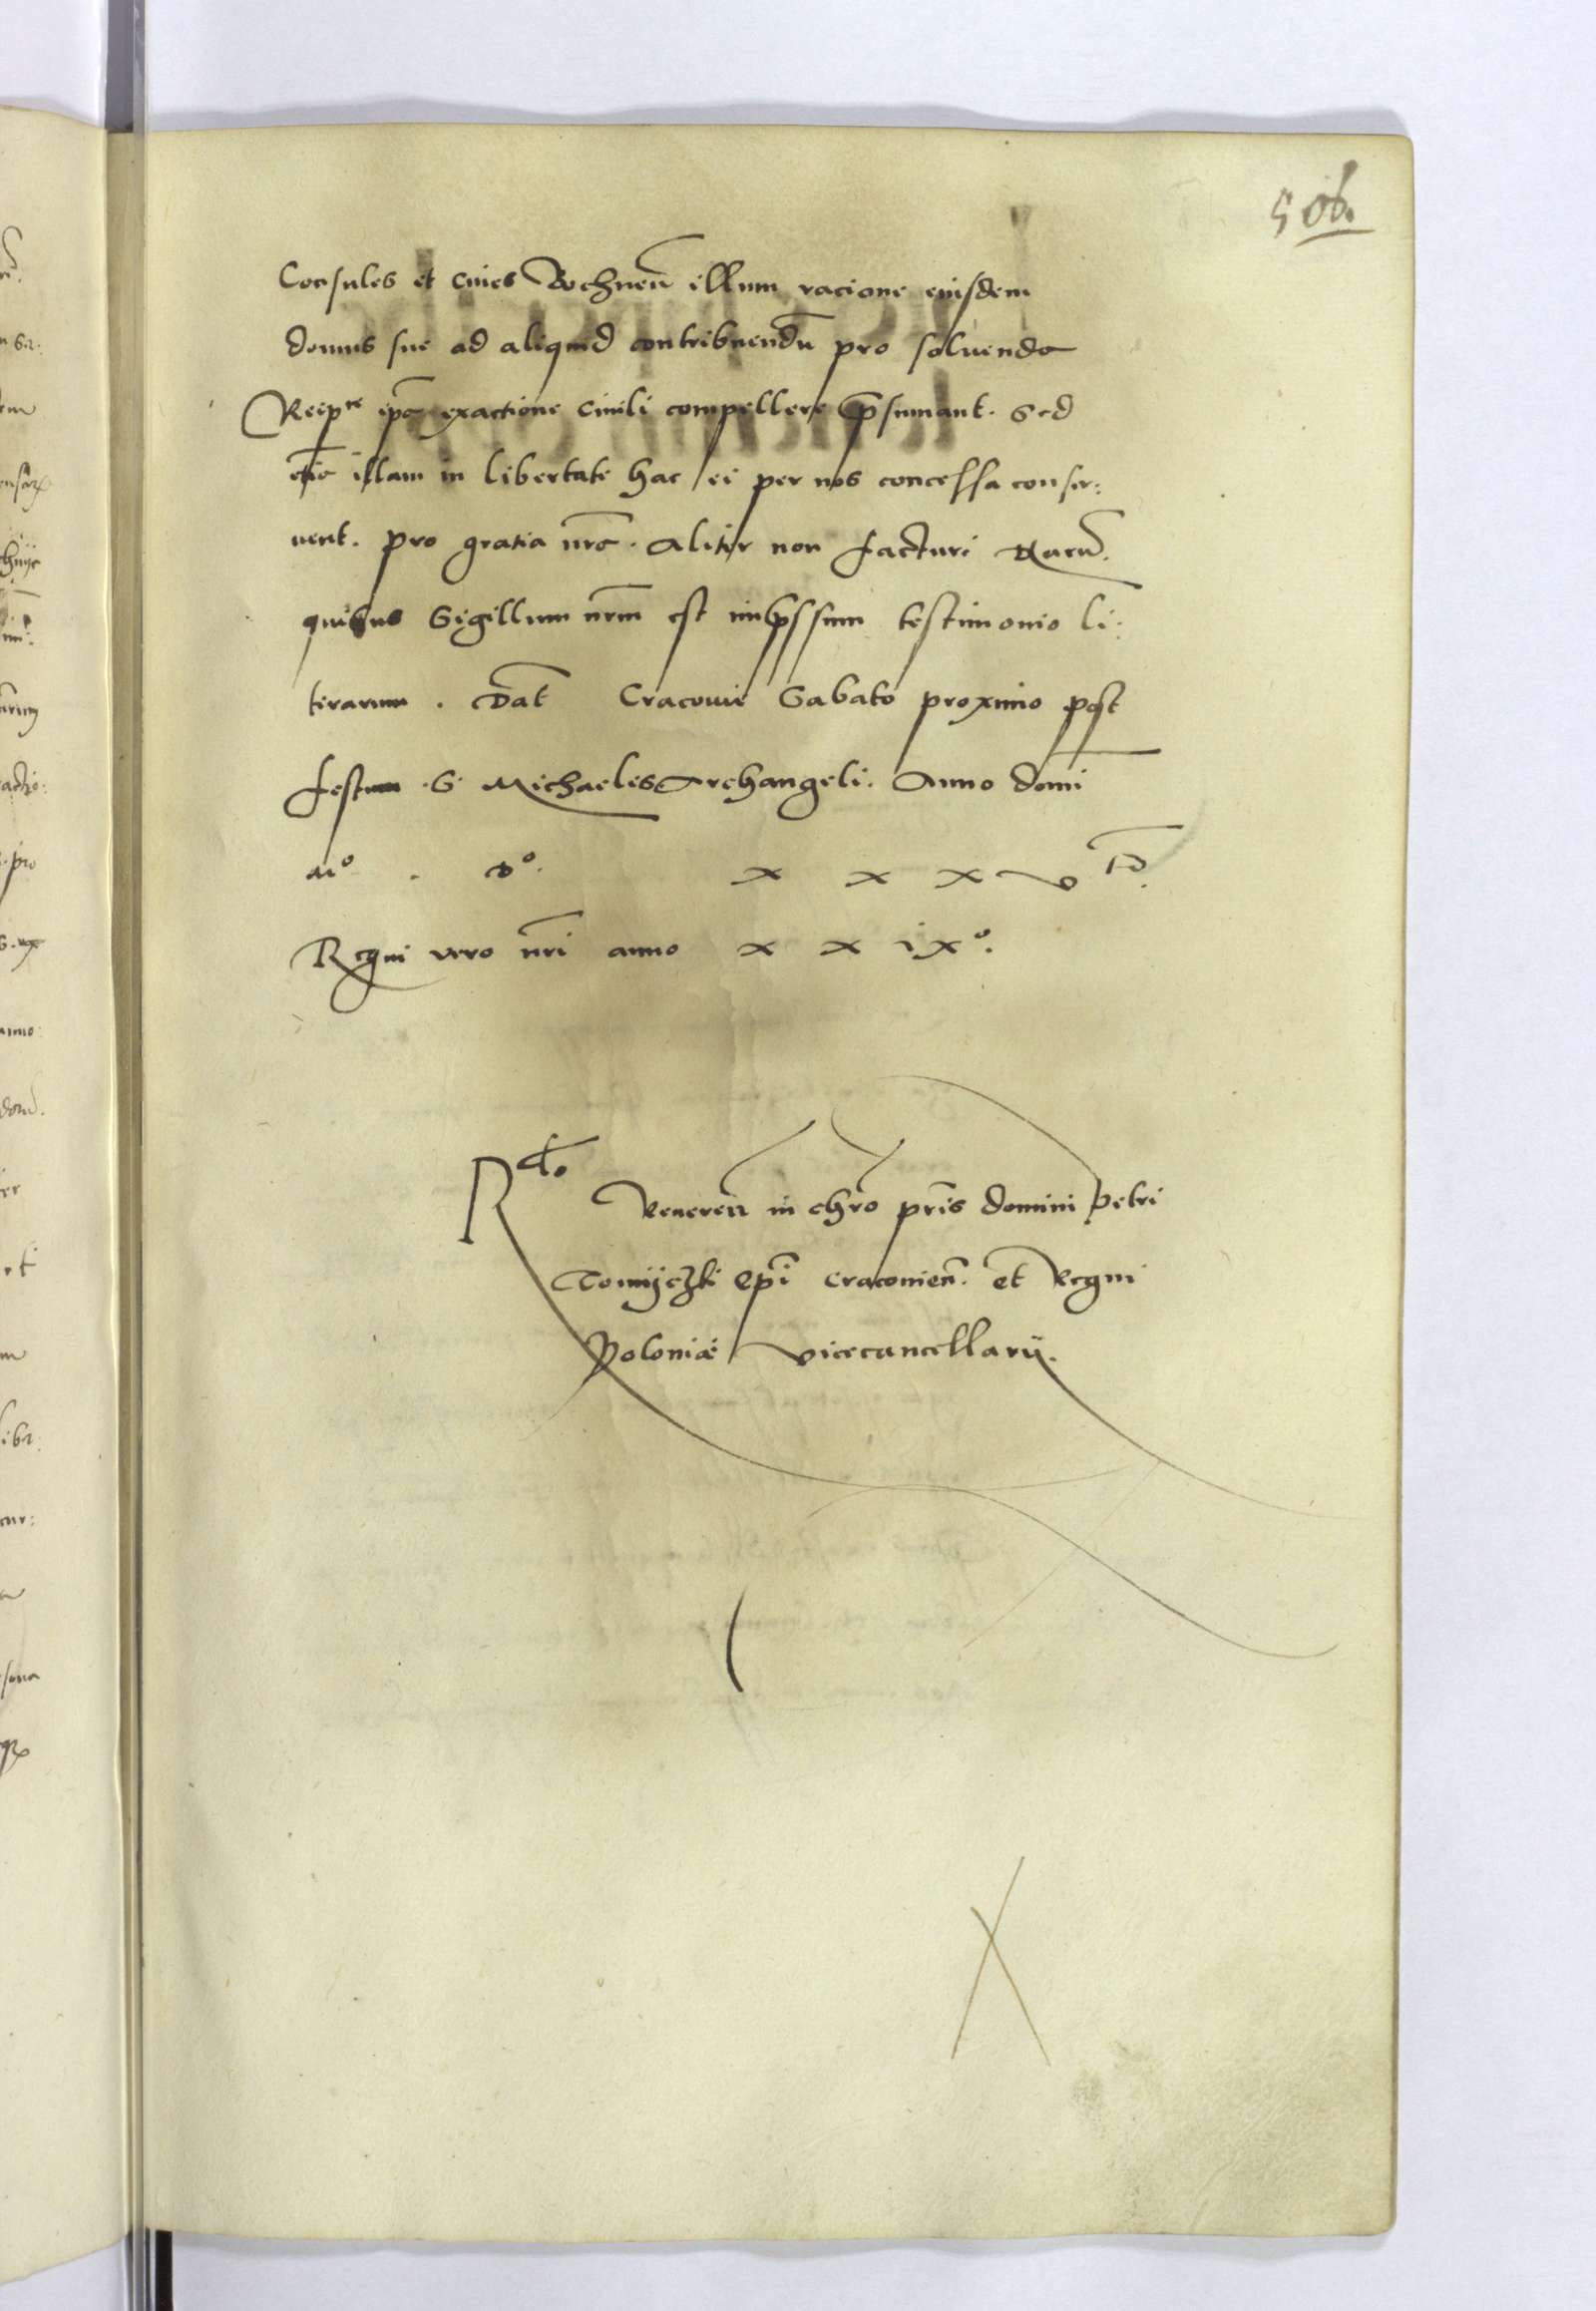 506.
Consules et ciues Bochnen̄ illum racione eiusdem
domus sue ad aliquid contribuendū pro soluenda
ip̄a exactione ciuili compellere p̄sumant. Sed
illam in libertate hac ei per nos concessa conser:
uent. pro gratia nr̄a. aliter non facturi Harū.
quibus Sigillum nr̄m est imp̄ssum testimonio li:
terarum. Dat̄ Cracouie Sabato proximo post
festum .S. Michaelis Archangeli. Anno domī
Mº. Dº. x x x v
Regni vero nr̄i anno x x i xº.
Rᵗᵒ Veneren̄ in chr̄o pr̄is domini Petri
Tomijczki ep̄i cracouien̄. et Regni
Poloniæ vicecancellarij.